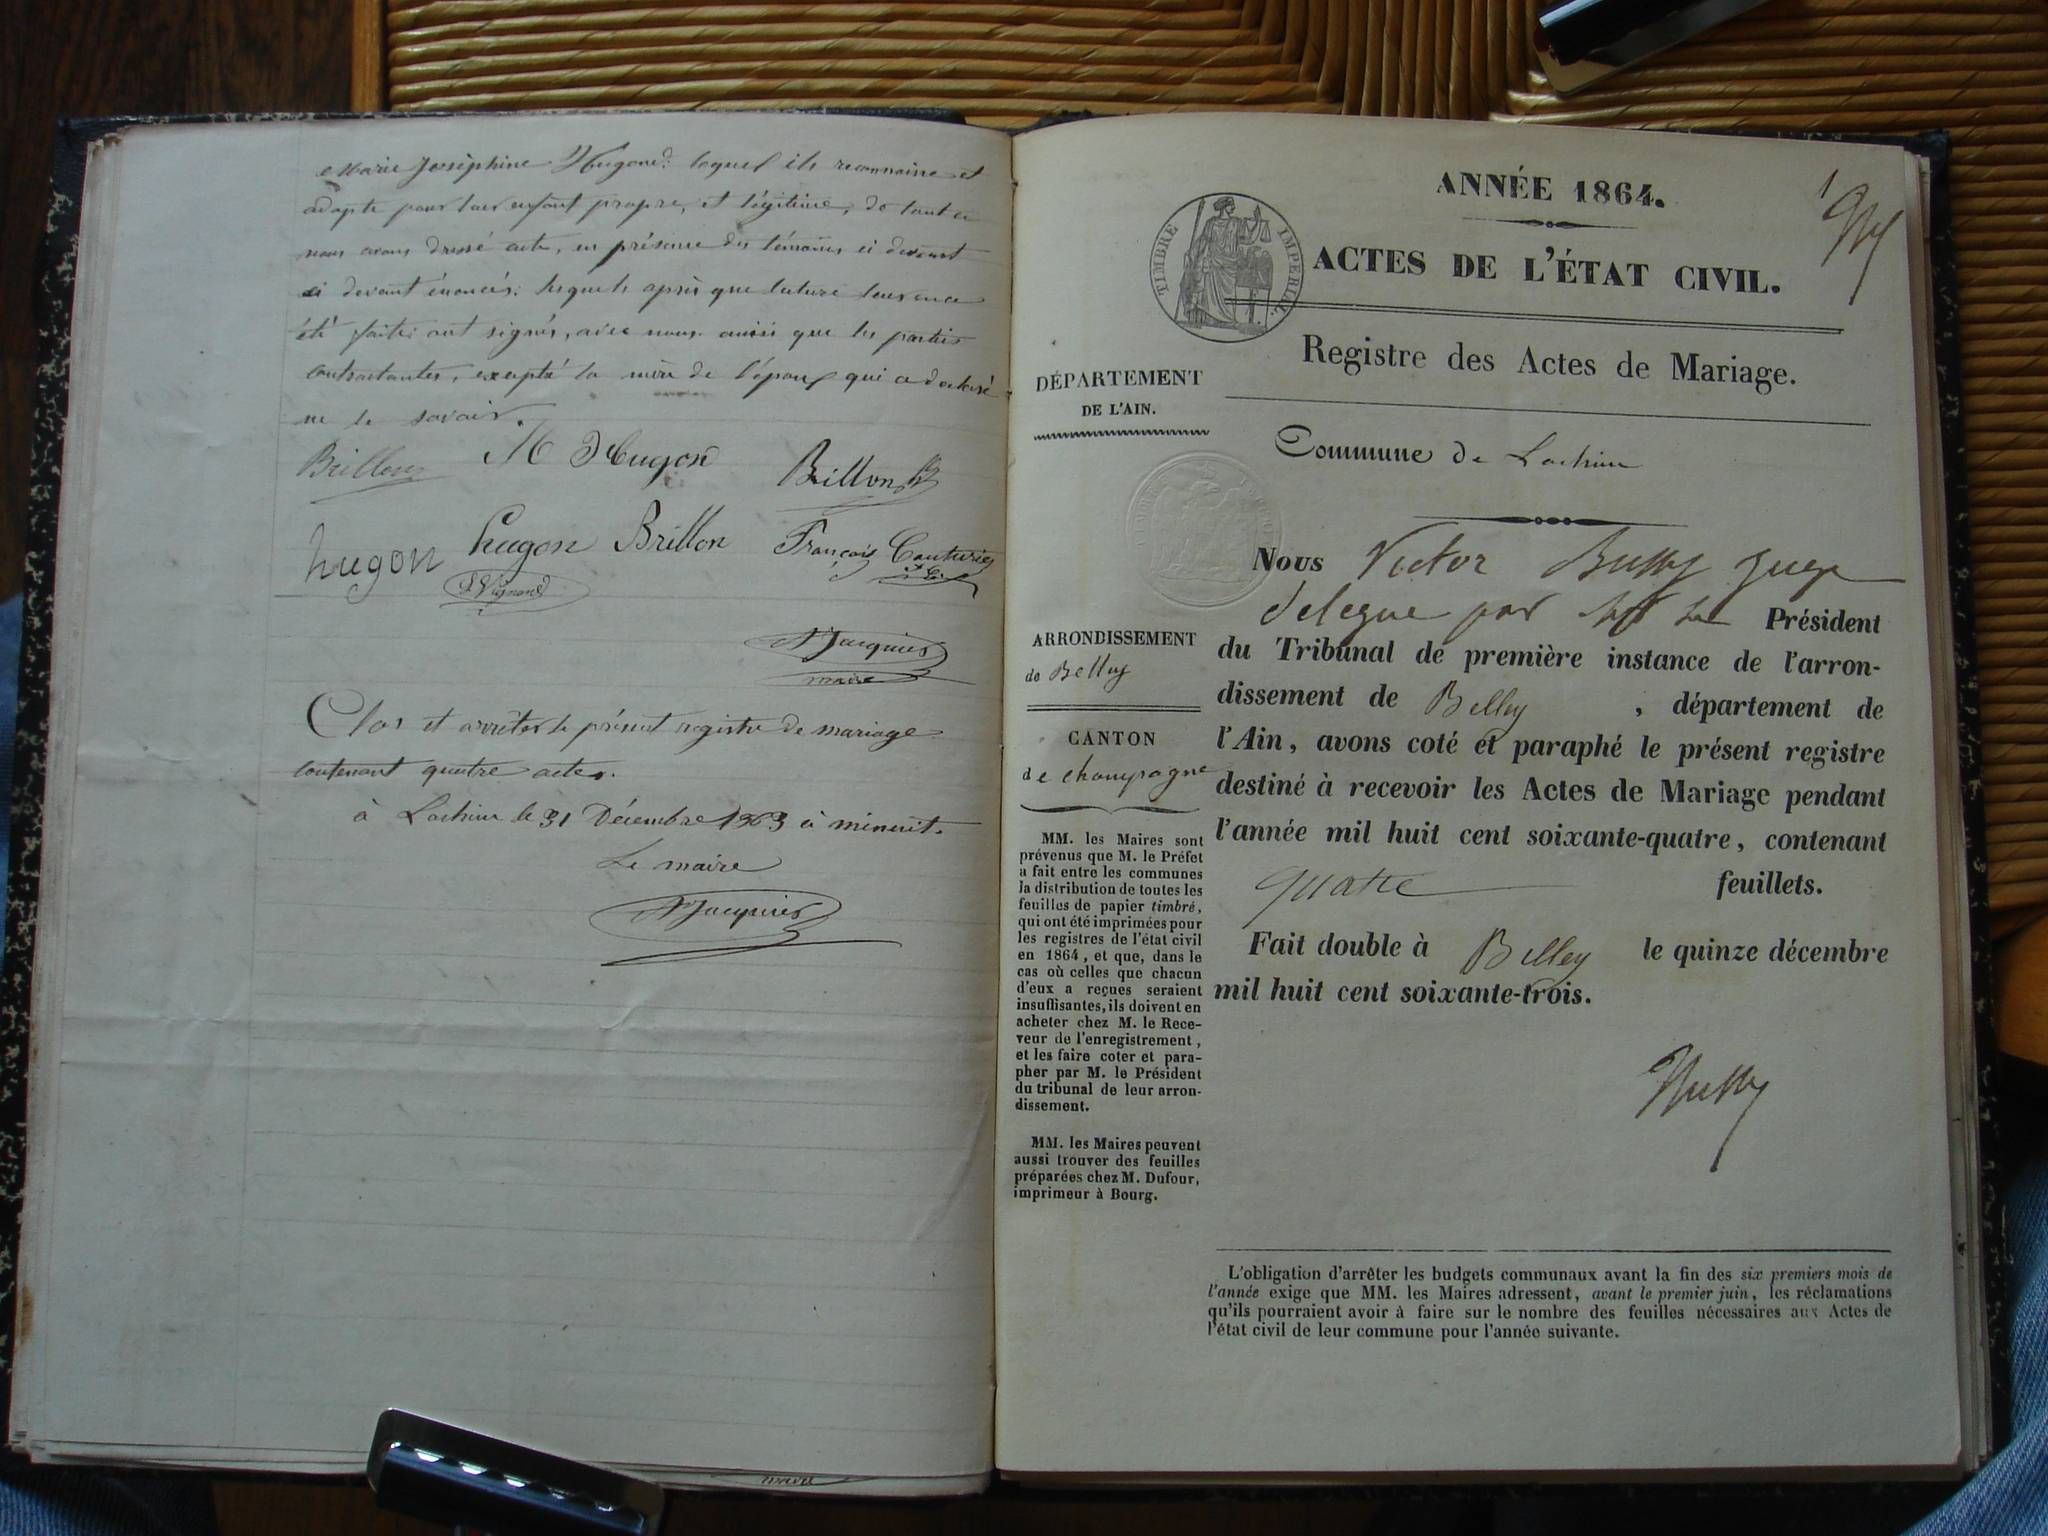 Marie Joséphine Hugond: lequel ils reconnaisse et
adopte pour leur enfant propre, et légitime, de tout ce
nous avons dressé acte, en présence des témoins ci devant
ci devant énoncés; lesquels après que lecture leur en a
été faite ont signés, avec nous ainsi que les parties
contractantes, excepté la mère de l'époux qui a déclaré
ne le savoir.
Brillon M Hugon Brillon
hugon hugon Brillon François Couturier
Jacquier
maire
Clos et arrêter le présent registre de mariage
contenant quatre actes.
à Lochieu le 31 Décembre 1863 à minuit.
Le maire
Jacquier
ANNÉE 1864.
TIMBRE IMPÉRIAL
ACTES DE L'ÉTAT CIVIL.
Registre des Actes de Mariage.
DÉPARTEMENT
DE L'AIN.
Commune de Lochieu
Nous Victor Bussy juge
delegue par Le Président
du Tribunal de première instance de l'arron-
dissement de Belley, département de
l'Ain, avons coté et paraphé le présent registre
destiné à recevoir les Actes de Mariage pendant
l'année mil huit cent soixante-quatre, contenant
quatre feuillets.
Fait double à Belley le quinze décembre
mil huit cent soixante-trois.
Bussy
ARRONDISSEMENT
de Belley
CANTON
de champagne
MM. les Maires sont
prévenus que M. le Préfet
a fait entre les communes
la distribution de toutes les
feuilles de papier timbré,
qui ont été imprimées pour
les registres de l'état civil
en 1864, et que, dans le
cas où celles que chacun
d'eux a reçues seraient
insuffisantes, ils doivent en
acheter chez M. le Rece-
veur de l'enregistrement,
et les faire coter et para-
pher par M. le Président
du tribunal de leur arron-
dissement.
MM. les Maires peuvent
aussi trouver des feuilles
préparées chez M. Dufour,
imprimeur à Bourg.
L'obligation d'arrêter les budgets communaux avant la fin des six premiers mois de
l'année exige que MM. les Maires adressent, avant le premier juin, les réclamations
qu'ils pourraient avoir à faire sur le nombre des feuilles nécessaires aux Actes de
l'état civil de leur commune pour l'année suivante.
maire